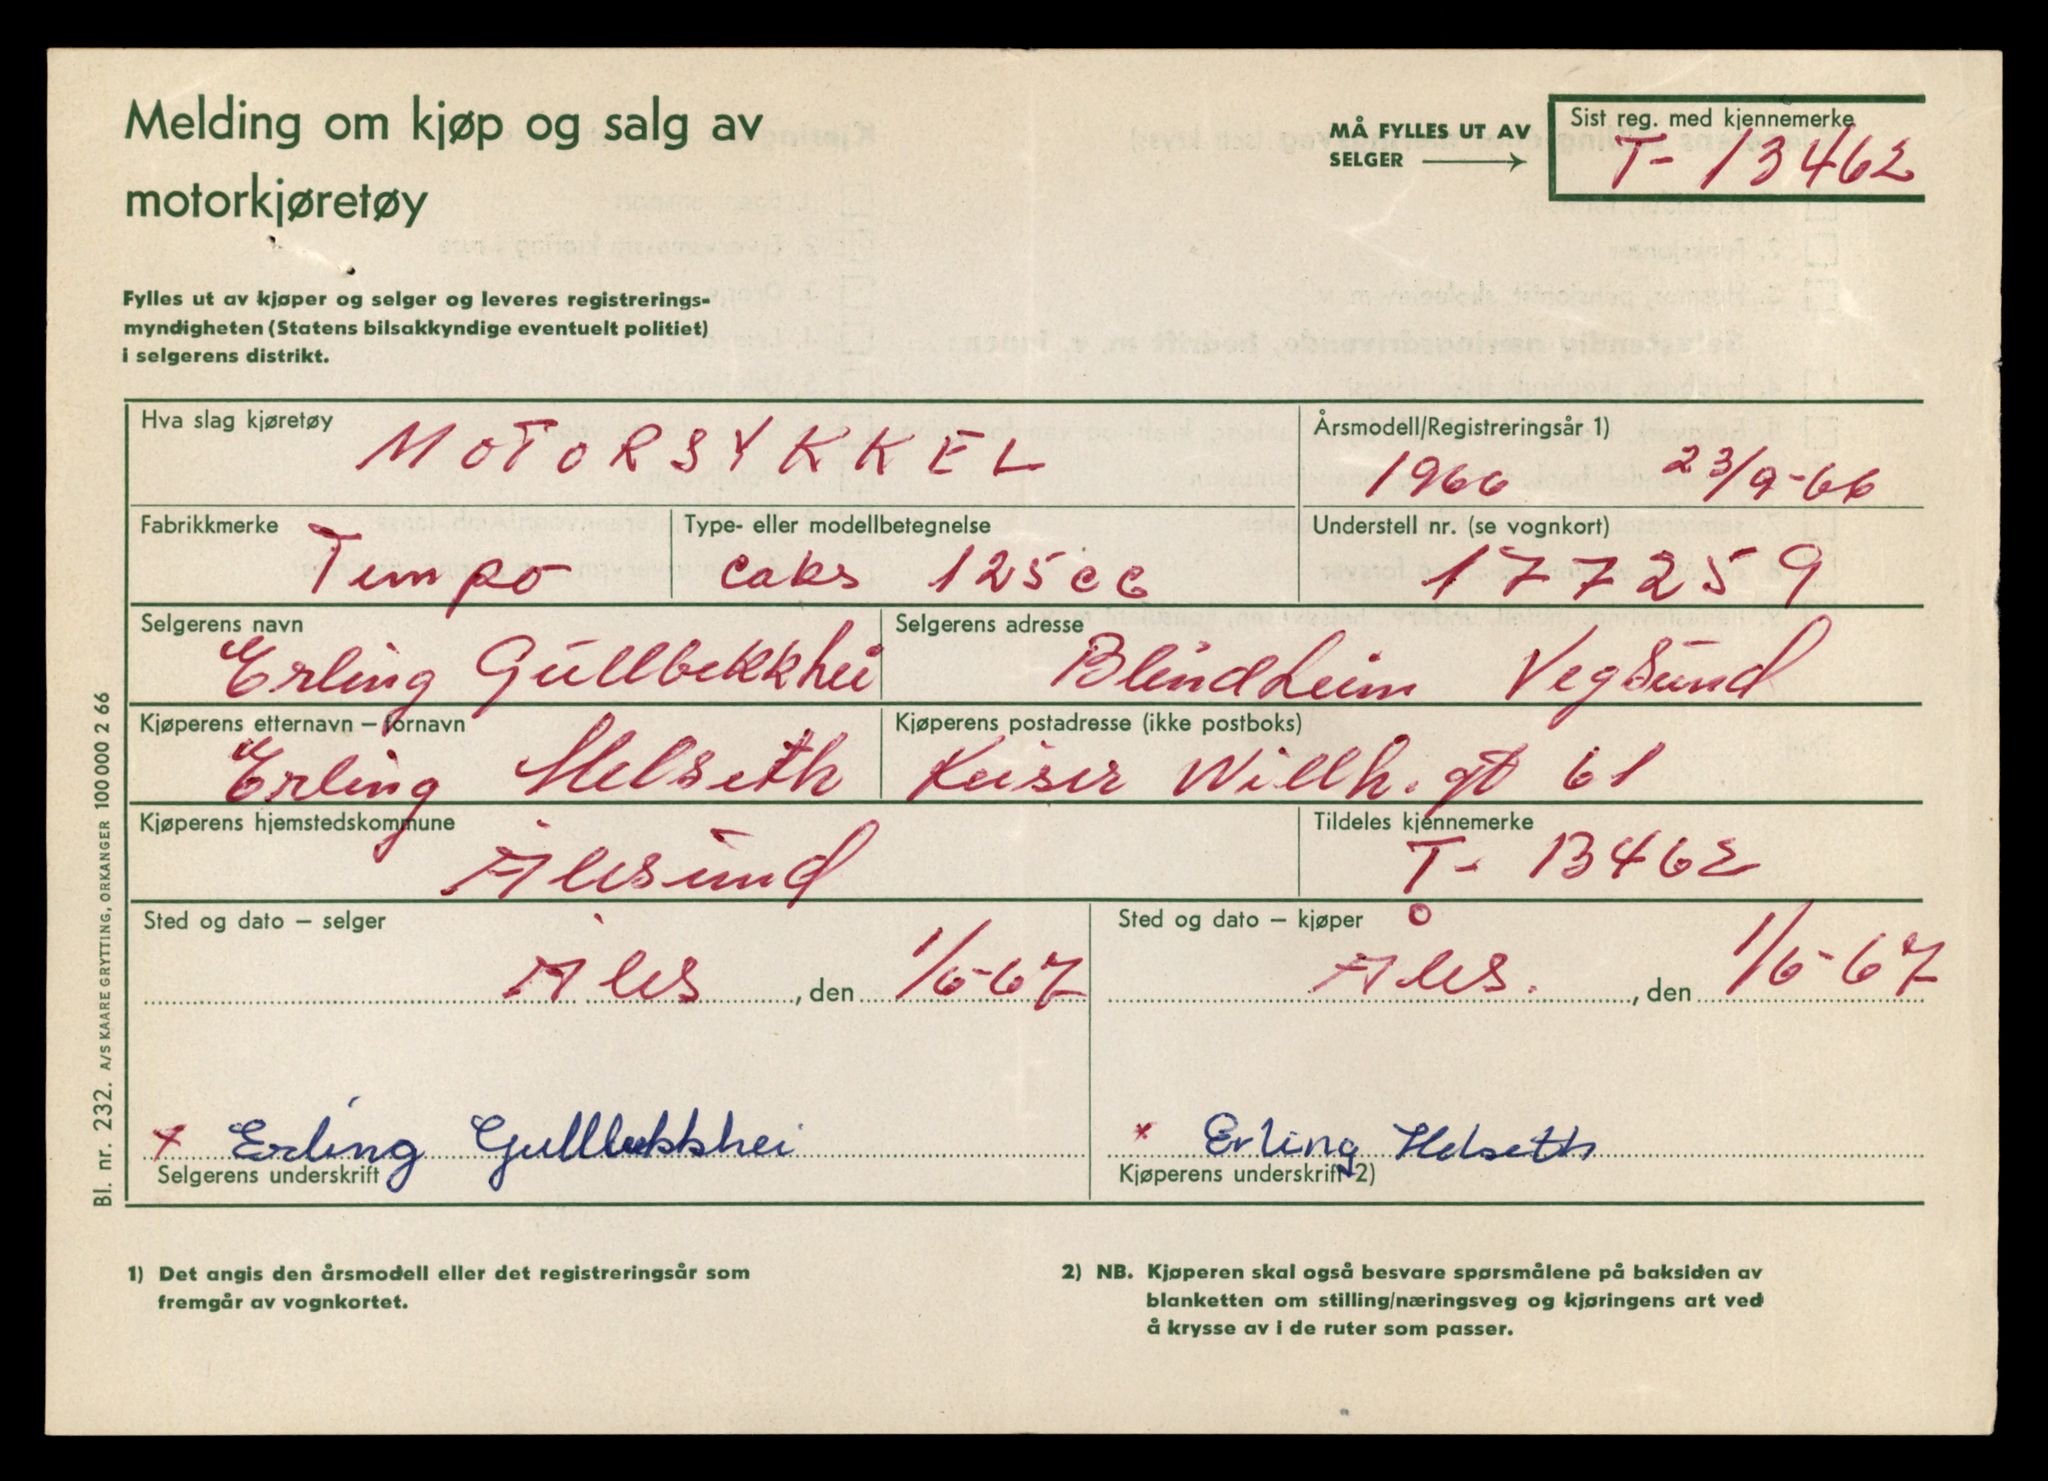 Melding om kjøp og salg av
motorkjøretøy
MÅ FYLLES UT AV
SELGER
Sist reg. med kjennemerke
T- 13462
Fylles ut av kjøper og selger og leveres registrerings-
myndigheten (Statens bilsakkyndige eventuelt politiet)
i selgerens distrikt.
Hva slag kjøretøy
MOTORSYKKEL
Årsmodell/Registreringsår 1)
1966 23/9-66
Fabrikkmerke
Tempo
Type- eller modellbetegnelse
125 cc
Understell nr. (se vognkort)
177259
Selgerens navn
Erling Gullbekkhei
Selgerens adresse
Blindheim Vegsund
Kjøperens etternavn – fornavn
Erling Helseth
Kjøperens postadresse (ikke postboks)
Keiser Wilh. gt 61
Kjøperens hjemstedskommune
Ålesund
Tildeles kjennemerke
T- 13462
Sted og dato – selger
Åles , den 1/6-67
Sted og dato – kjøper
Åles. , den 1/6-67
x Erling Gullbekkhei
Selgerens underskrift
x Erling Helseth
Kjøperens underskrift 2)
1) Det angis den årsmodell eller det registreringsår som
fremgår av vognkortet.
2) NB. Kjøperen skal også besvare spørsmålene på baksiden av
blanketten om stilling/næringsveg og kjøringens art ved
å krysse av i de ruter som passer.
Bl. nr. 232. A/S KAARE GRYTTING, ORKANGER 100 000 2 66